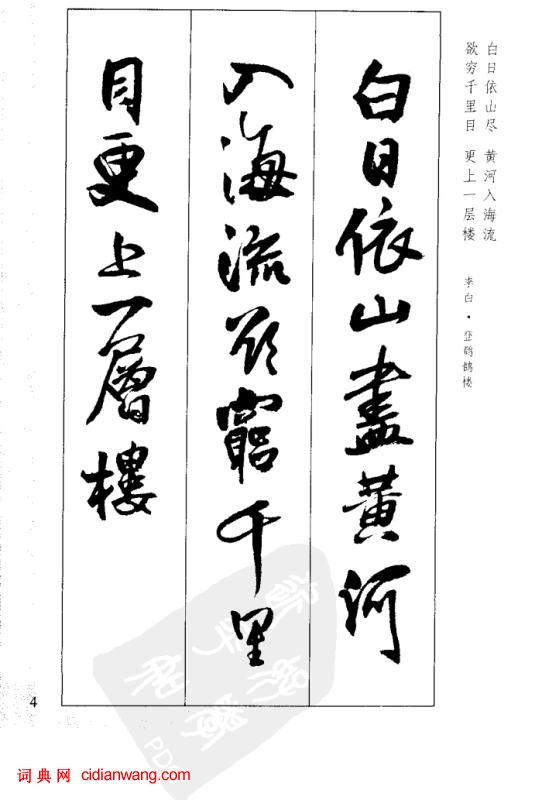 白日依山尽 黄河入海流
欲穷千里目 更上一层楼
李白·登鹳鹤楼
白日依山盡黃河
入海流欲窮千里
目更上一層樓
4
词典网 cidianwang.com